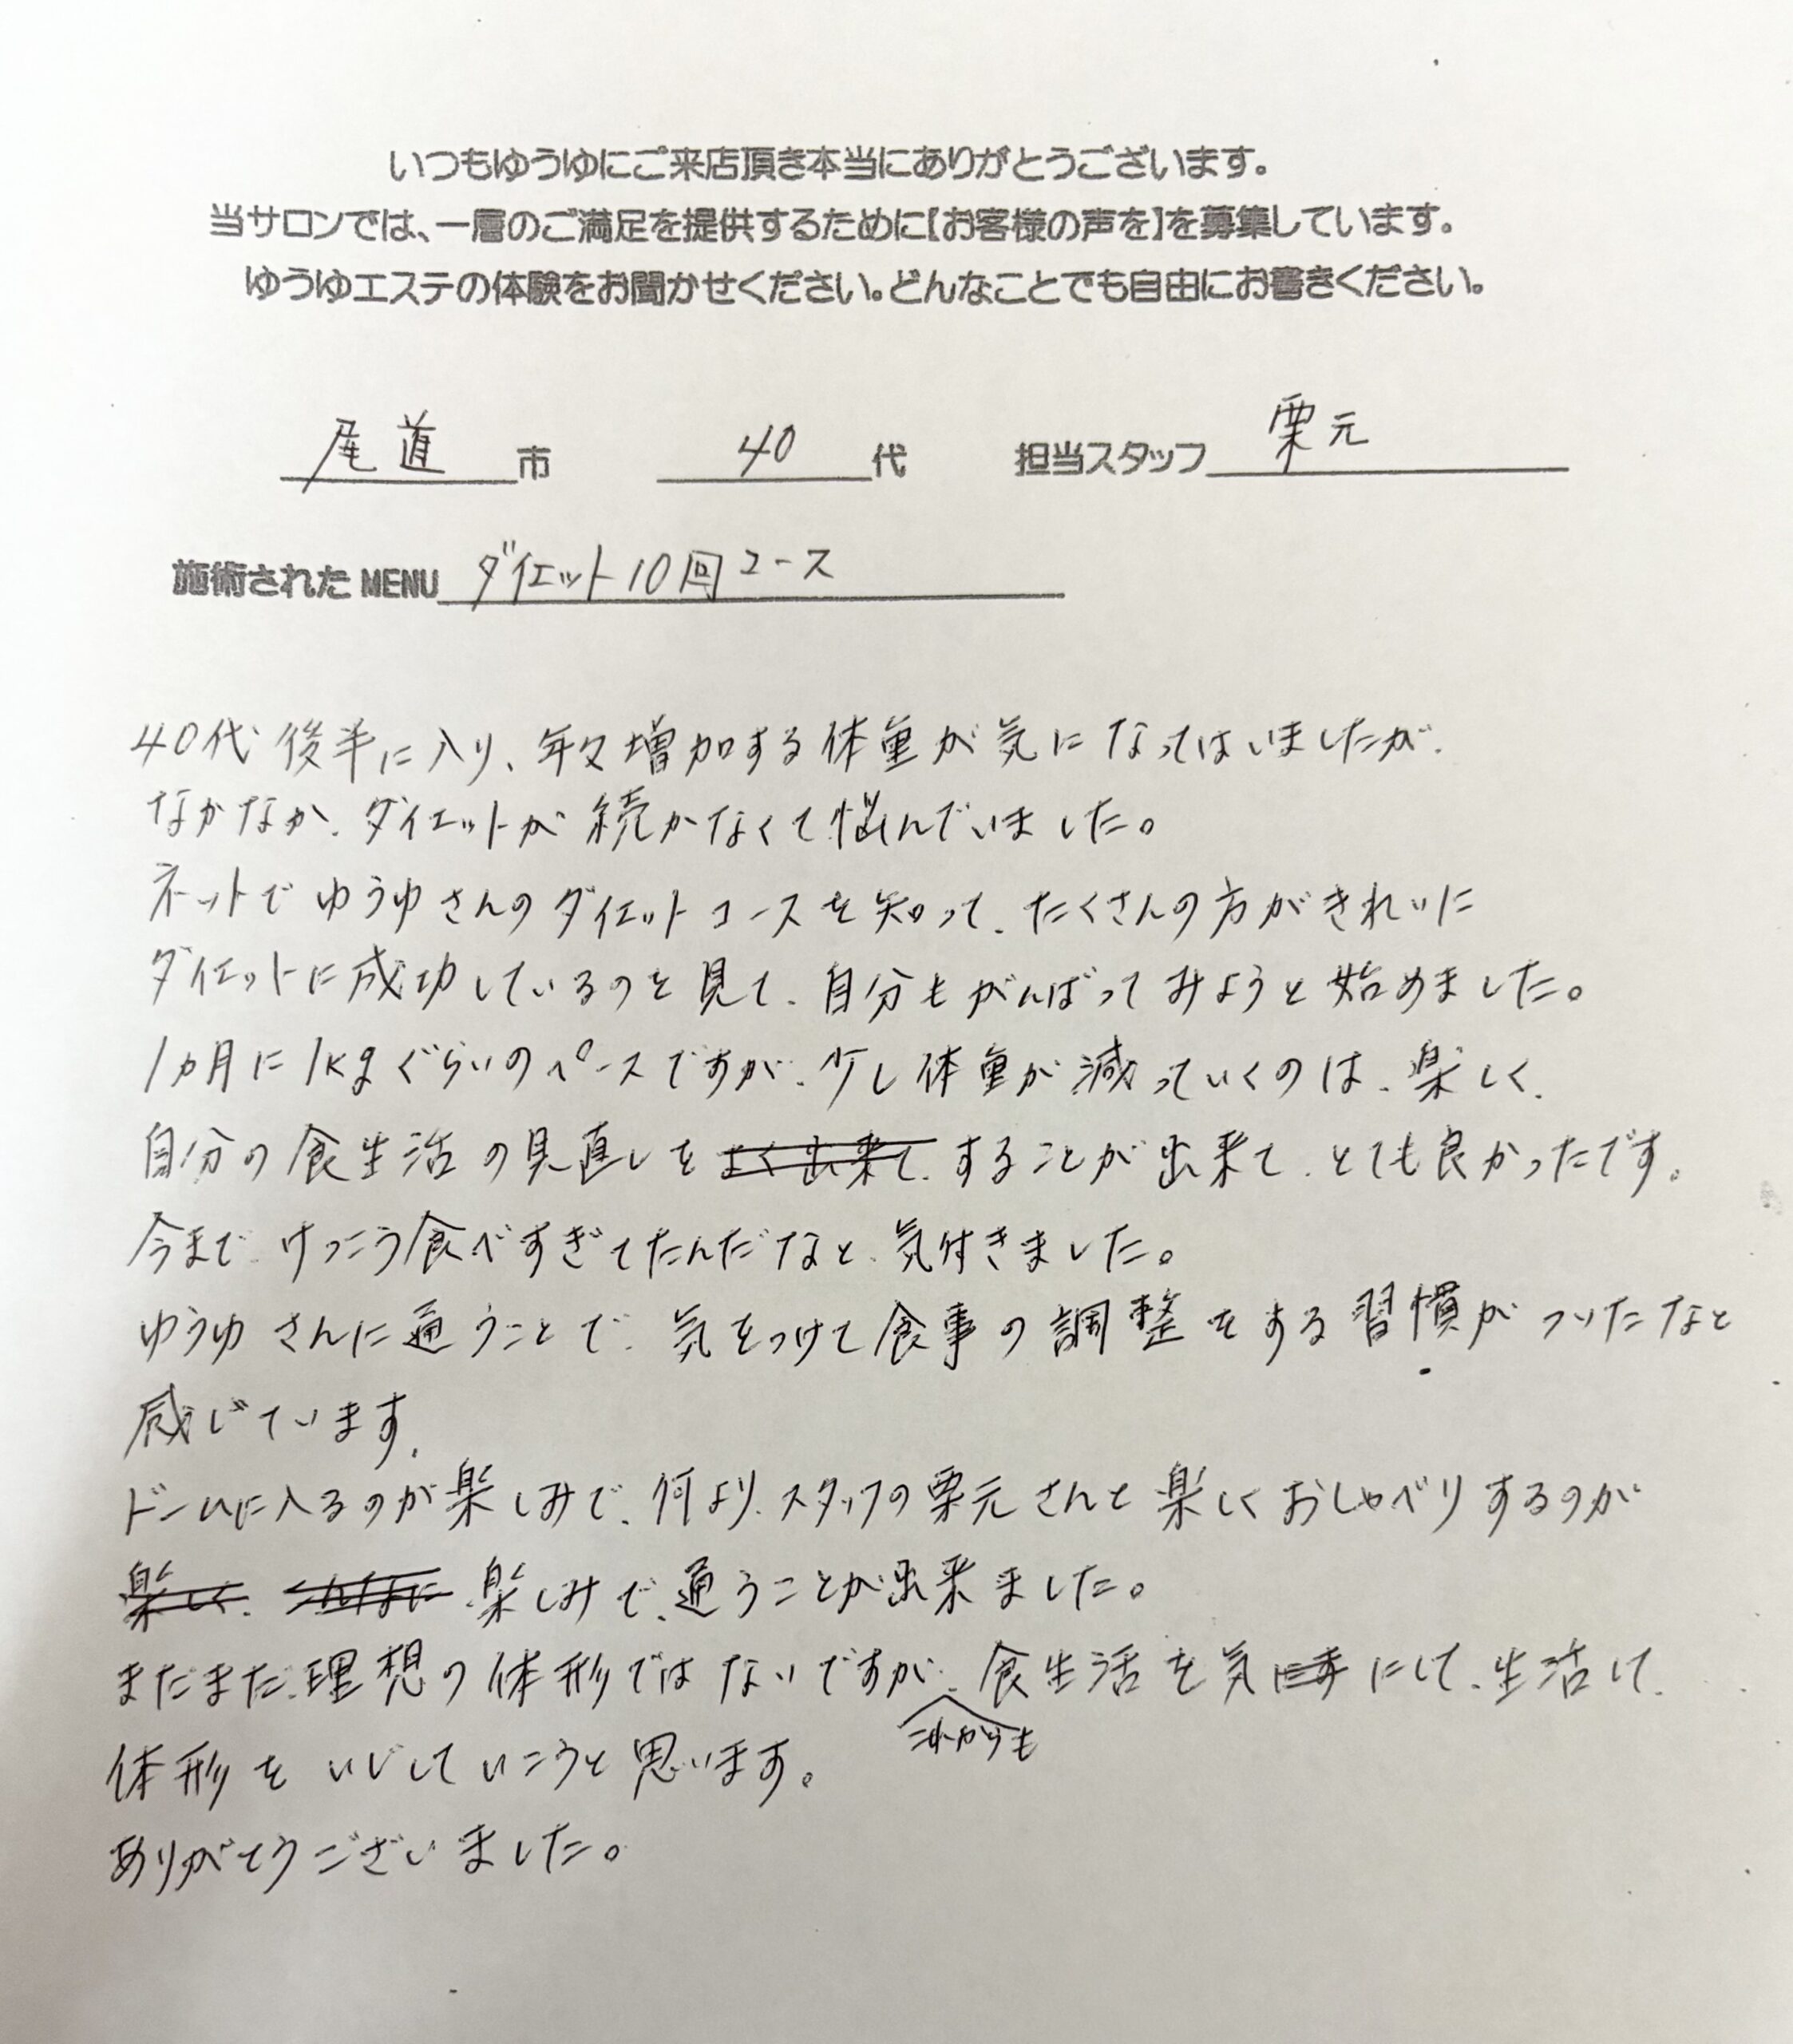 いつもゆうゆにご来店頂き本当にありがとうございます。
当サロンでは、一層のご満足を提供するために【お客様の声を】を募集しています。
ゆうゆエステの体験をお聞かせください。どんなことでも自由にお書きください。
尾道市 40代 担当スタッフ 栗元
施術されたMENU ダイエット10回コース
40代後半に入り、年々増加する体重が気になってはいましたが、
なかなか、ダイエットが続かなくて悩んでいました。
ネットでゆうゆさんのダイエットコースを知って、たくさんの方がきれいに
ダイエットに成功しているのを見て、自分もがんばってみようと始めました。
1ヵ月に1kgぐらいのペースですが、少し体重が減っていくのは、楽しく、
自分の食生活の見直しをよく出来て、することが出来て、とても良かったです。
今まで、けっこう食べすぎてたんだなと、気付きました。
ゆうゆさんに通うことで、気をつけて食事の調整をする習慣がついたなと
感じています。
ドームに入るのが楽しみで、何より、スタッフの栗元さんと楽しくおしゃべりするのが
楽しく、楽しみで、通うことが出来ました。
まだまだ、理想の体形ではないですが、食生活を気にして、生活して、
これからも
体形をいじしていこうと思います。
ありがとうございました。